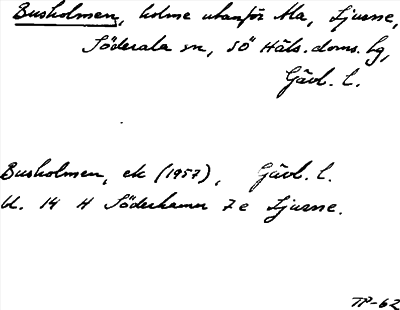 Busholmen, holme utanför Ala, Ljusne,
Söderala sn, SÖ Häls. doms. hg,
Gävl. l.
Busholmen, ek (1957), Gävl. l.
Bl. 14 H Söderhamn 7e Ljusne.
TP-62